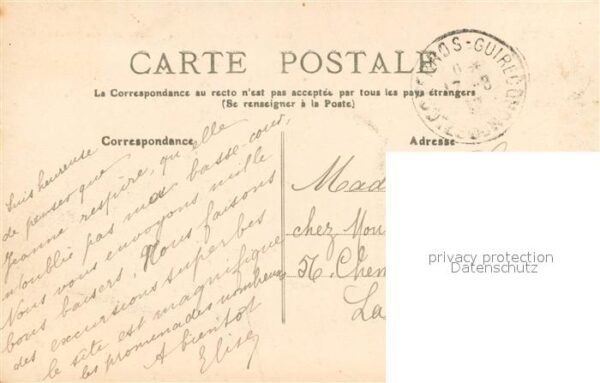 CARTE POSTALE
La Correspondance au recto n'est pas acceptée par tous les pays étrangers
(Se renseigner à la Poste)
PERROS-GUIREC
CÔTES-DU-NORD
Correspondance
Adresse
Suis heureuse
de penser que
Jeanne respire, qu'elle
n'oublie pas ma basse-cour,
Nous vous envoyons mille
bons baisers. Nous faisons
des excursions superbes
le site est magnifique
les promenades nombreuses
A bientôt
Elise
Mad
chez Mou
56, Chem
La
privacy protection
Datenschutz